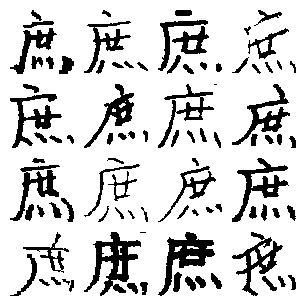 庶庶庶庶
庶庶庶庶
庶庶庶庶
庶庶庶庶